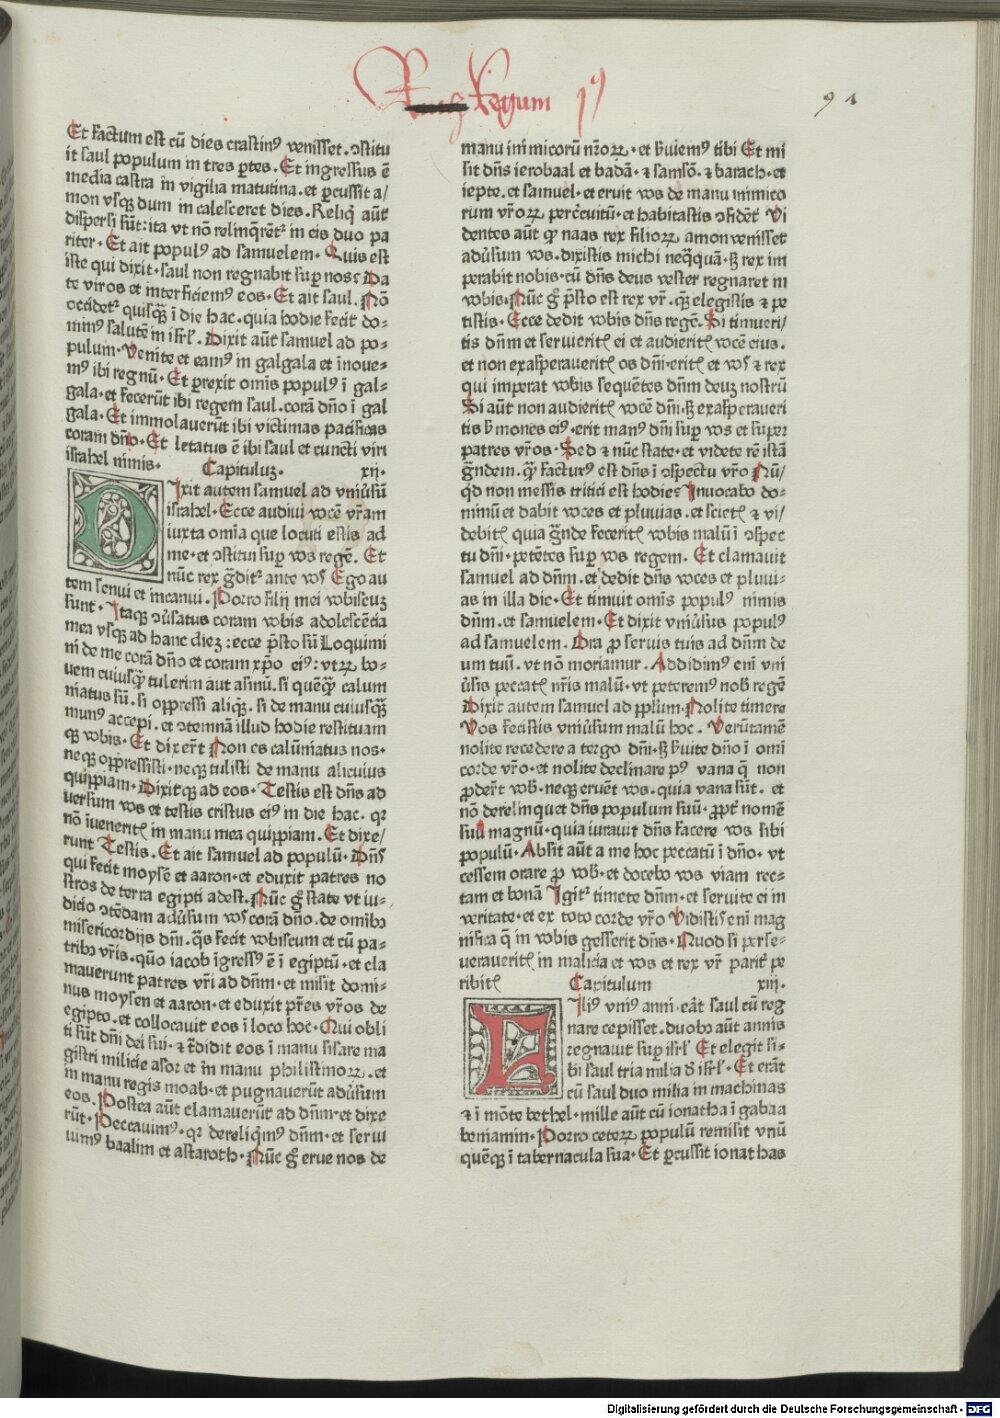 Regum jꝰ
91
Et factum est cū dies crastinꝰ venisset · ↄstitu
it saul populum in tres ꝑtes · Et ingressus ē
media castra in vigilia matutina · et ꝑcussit a/
mon vsqꝫ dum incalesceret dies · Reliqͥ aūt
dispersi sūt: ita vt nō relinqͤret᷑ in eis duo pa
riter · Et ait populꝰ ad samuelem · Quis est
iste qui dixit · saul non regnabit suꝑ nos: Da
te viros et interficiemꝰ eos · Et ait saul · Nō
occidet᷑ quisqͣꝫ ī die hac · quia hodie fecit do-
minꝰ salutē in isrl̄ · Dixit aūt samuel ad po-
pulum · Venite et eamꝰ in galgala et inoue-
mꝰ ibi regnū · Et ꝑrexit omīs populꝰ ī gal-
gala · et fecerūt ibi regem saul · corā dn̄o ī gal
gala · Et immolauerūt ibi victimas pacificas
coram dn̄o · Et letatus ē ibi saul et cuncti viri
israhel nimis · Capituluꝫ · xij ·
Dixit autem samuel ad vniūsū
israhel · Ecce audiui vocē vr̄am
iuxta omīa que locuti estis ad
me · et ↄstitui suꝑ vos regē · Et
nūc rex gͣdit᷑ ante vos Ego au
tem senui et incanui · Porro filij mei vobiscuꝫ
sunt · Itaqꝫ ↄuersatus coram vobis adolescēcia
mea vsqꝫ ad hanc dieꝫ : ecce pͤsto sū Loquimi
ni de me corā dn̄o et coram xp̄o eiꝰ : vtꝝ bo-
uem cuiusqͣꝫ tulerim aut asinū · si quēqͣꝫ calum
niatus sū · si oppressi aliqͣꝫ · si de manu cuiusqͣꝫ
munꝰ accepi · et ↄtemnā illud hodie restituam
qꝫ vobis · Et dixer̄t Non es calūniatus nos ·
neqꝫ oppressisti · neqꝫ tulisti de manu alicuius
quippiam · Dixitqꝫ ad eos · Testis est dn̄s ad
uersum vos et testis cristus eiꝰ in die hac · qꝛ
nō īuenerit​is in manu mea quippiam · Et dixe/
runt Testis · Et ait samuel ad populū · Dn̄s
qui fecit moysē et aaron · et eduxit patres no
stros de terra egipti adest · Nūc gͦ state vt iu-
dicio ↄtēdam adūsum vos corā dn̄o · de omībꝰ
misericordijs dn̄i · qͣs fecit vobiscum et cū pa-
tribꝰ vr̄is · quō iacob īgressꝰ ē ī egiptū · et cla
mauerunt patres vr̄i ad dn̄m · et misit domi-
nus moysen et aaron · et eduxit pr̄es vr̄os de
egipto · et collocauit eos ī loco hoc · Qui obli
ti sūt dn̄i dei sui · ⁊ tͣdidit eos ī manu sisare ma
gistri milicie asor et in manu philistinoꝝ · et
in manu regis moab · et pugnauerūt adūsum
eos · Postea aūt clamauerūt ad dn̄m · et dixe
rūt · Peccauimꝰ · qꝛ dereliqͥmꝰ dn̄m · et serui
uimꝰ baalim et astaroth · Nūc gͦ erue nos de
manu inimicorū nr̄oꝝ · et ẜuiemꝰ tibi Et mi
sit dn̄s ierobaal et badā · ⁊ samsō · ⁊ barach · et
iepte · et samuel · et eruit vos de manu inimico
rum vr̄oꝝ ꝑcircuitū · et habitastis ↄfidēt​er Vi
dentes aūt qͣꝫ naas rex filioꝝ amon venisset
adūsum vos · dixistis michi neqͣquā · sꝫ rex im
perabit nobis · cū dn̄s deus vester regnaret in
vobis · Nūc gͦ pͤsto est rex vr̄ · quē elegistis ⁊ pe
tistis · Ecce dedit vobis dn̄s regē · Si timueri/
tis dn̄m et seruieritis ei et audieritis vocē eius ·
et non exasperaueritis os dn̄i · eritis et vos ⁊ rex
qui imperat vobis sequētes dn̄m deuꝫ nostrū
Si aūt non audieritis vocē dn̄i · sꝫ exasperaueri
tis ẜmones eiꝰ · erit manꝰ dn̄i suꝑ vos et super
patres vr̄os · Sed ⁊ nūc state · et videte rē istā
gͣndem · quā facturꝰ est dn̄s ī ↄspectu vr̄o Nū/
qͥd non messis tritici est hodie: Inuocabo do-
minū et dabit voces et pluuias · et scietis ⁊ vi/
debitis quia gͣnde feceritis vobis malū ī ↄspec
tu dn̄i · petētes suꝑ vos regem · Et clamauit
samuel ad dn̄m · et dedit dn̄s voces et pluui-
as in illa die · Et timuit omīs populꝰ nimis
dn̄m · et samuelem · Et dixit vniūsus populꝰ
ad samuelem · Ora ꝓ seruis tuis ad dn̄m de
um tuū · vt nō moriamur · Addidimꝰ enī vni
ūsis peccatis nr̄is malū · vt peteremꝰ nob̄ regē
Dixit autem samuel ad ppl̄um · Nolite timere
Vos fecistis vniūsum malū hoc · Verūtamē
nolite recedere a tergo dn̄i · sꝫ ẜuite dn̄o ī omī
corde vr̄o · et nolite declinare pꝰ vana q̄ non
ꝓder̄t vob̄ · neqꝫ eruēt vos · quia vana sūt · et
nō derelinquet dn̄s populum suū · ꝓpt᷑ nomē
suū magnū · quia iurauit dn̄s facere vos sibi
populū · Absit aūt a me hoc peccatū ī dn̄o · vt
cessem orare ꝓ vob̄ · et docebo vos viam rec-
tam et bonā Igit᷑ timete dn̄m · et seruite ei in
veritate · et ex toto corde vr̄o Vidistis enī mag
nifica q̄ in vobis gesserit dn̄s · Quod si perse-
uerauer​itis in malicia et vos et rex vr̄ parit᷑ pe
ribitis Capitulum xiij ·
Filiꝰ vniꝰ anni erāt saul cū reg
nare cepisset · duobꝰ aūt annis
regnauit suꝑ isrl̄ Et elegit si-
bi saul tria milia d̄ isrl̄ · Et erāt
cū saul duo milia in machinas
⁊ ī mōte bethel · mille aūt cū ionatha ī gabaa
beniamin · Porro ceteꝝ populū remisit vnū
quēqꝫ ī tabernacula sua · Et ꝑcussit ionathas
Digitalisierung gefördert durch die Deutsche Forschungsgemeinschaft - DFG